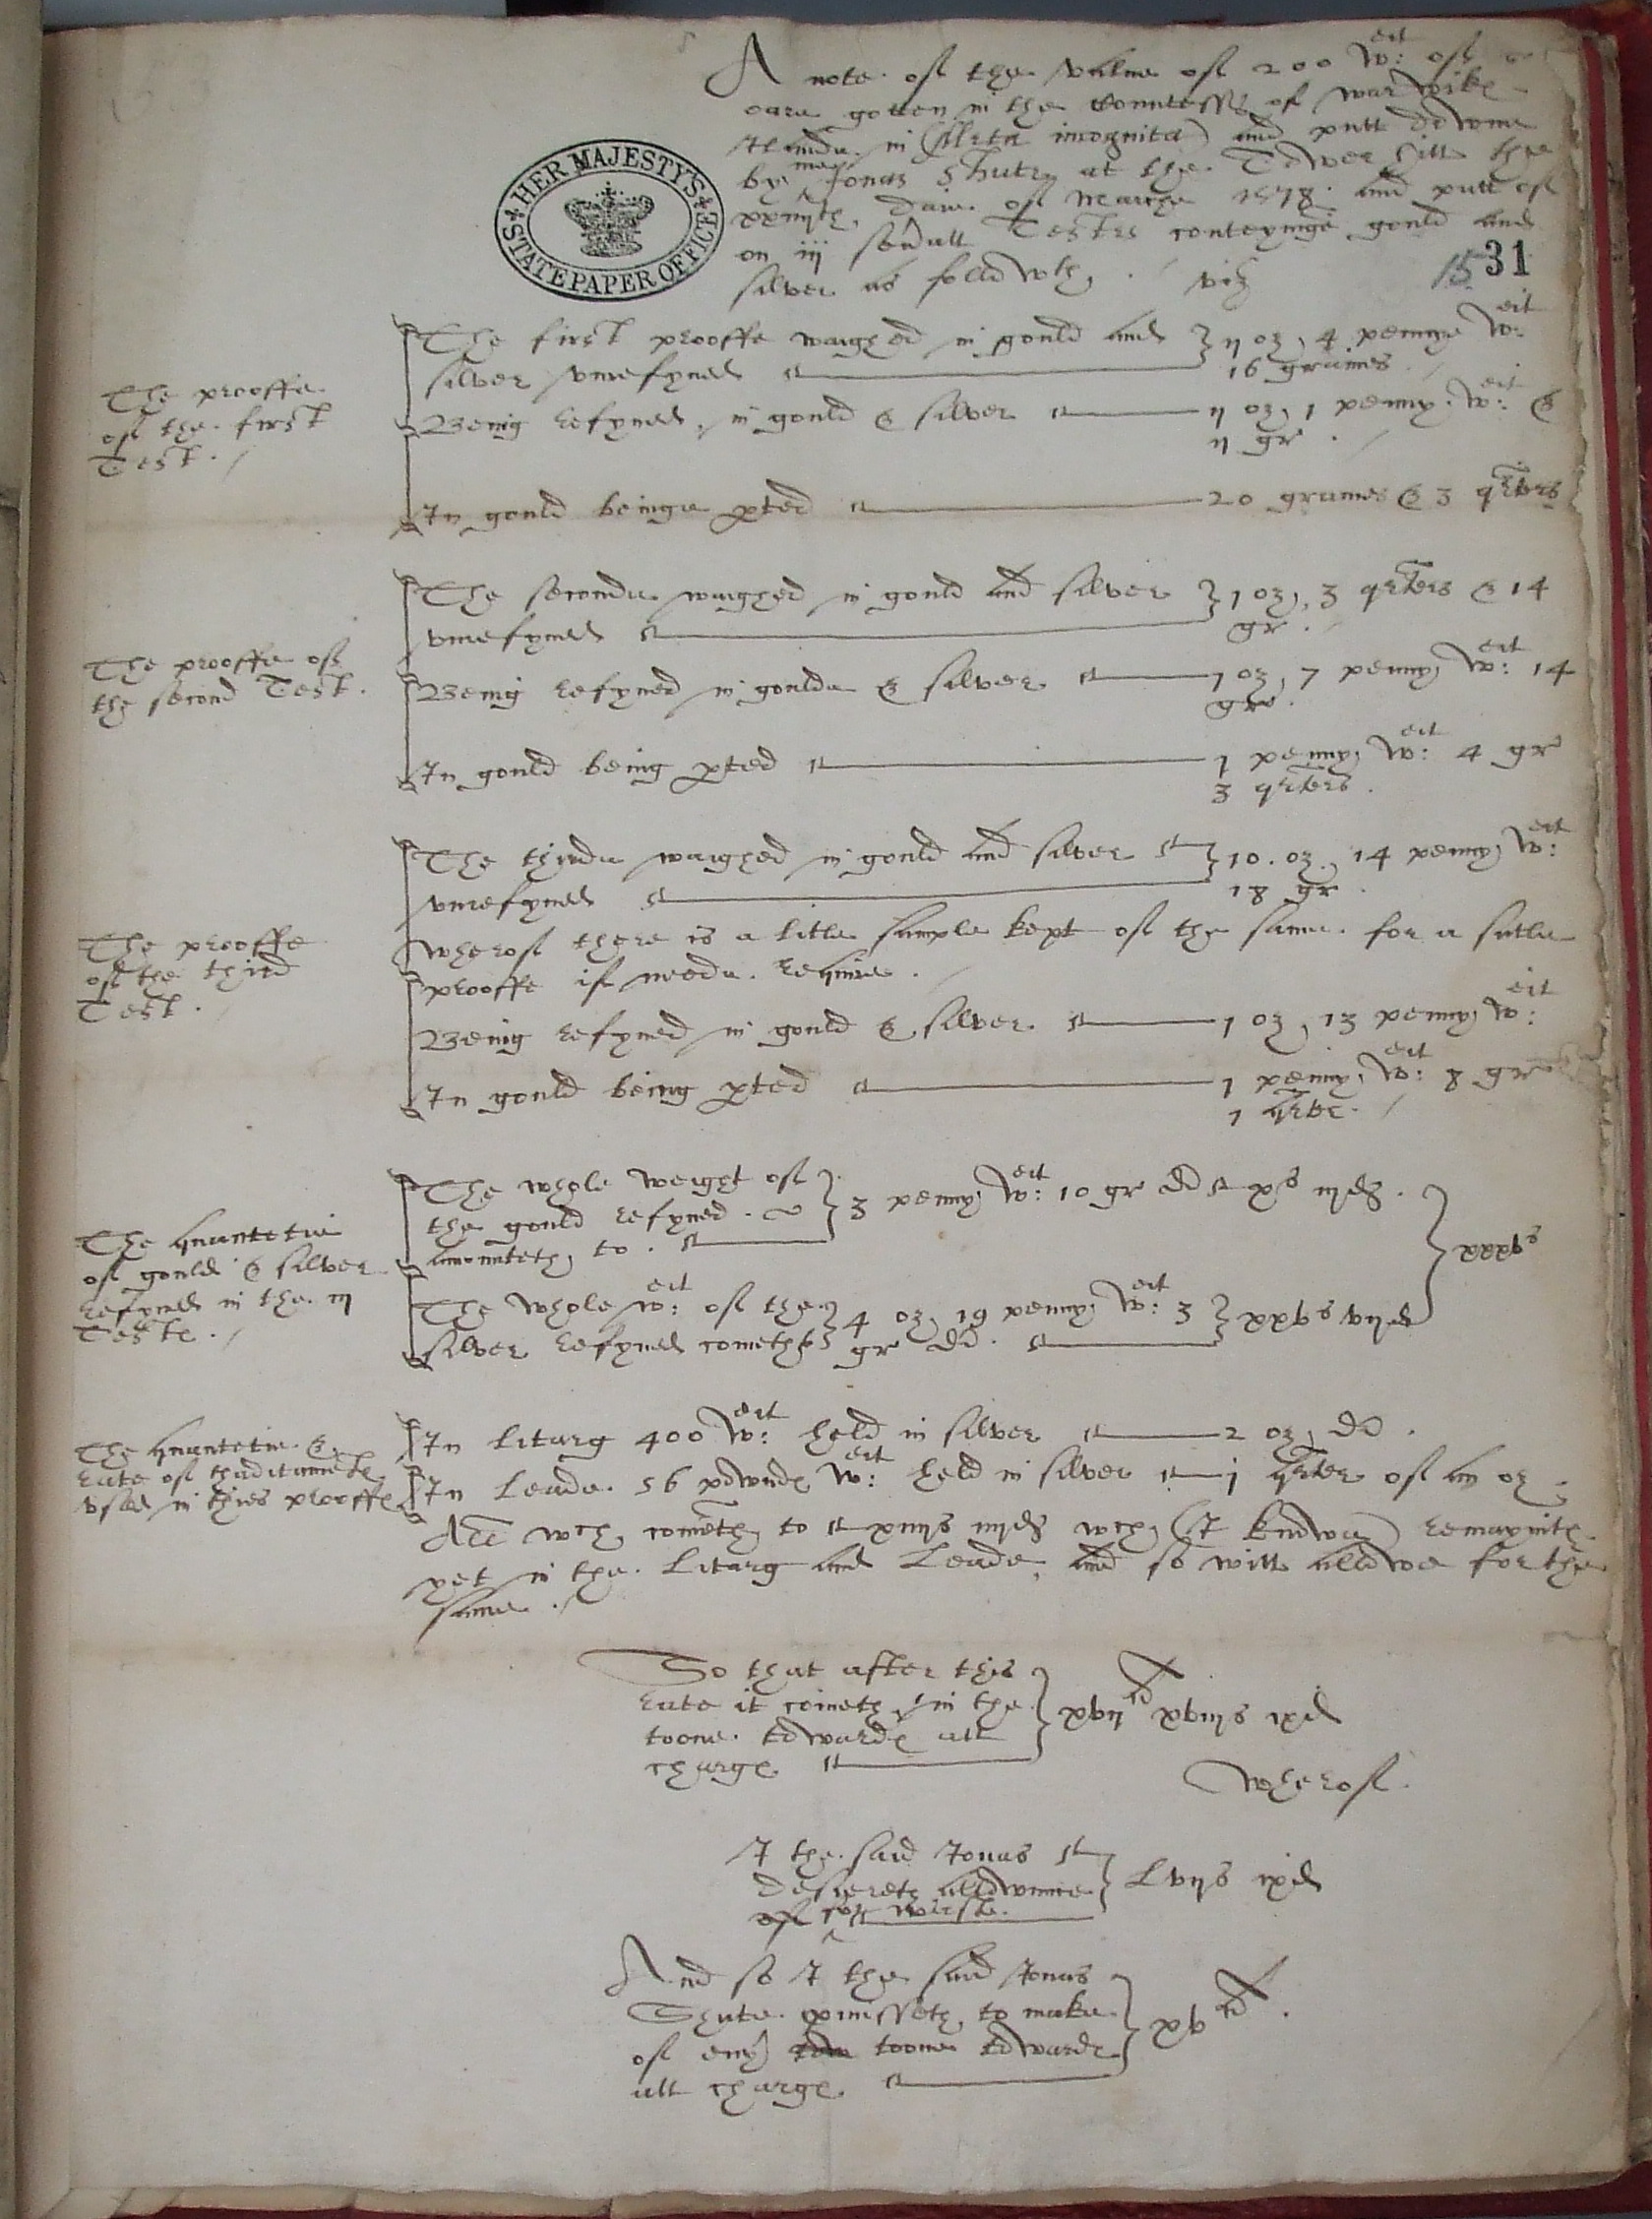 A note of the value of 200 w:eit of
oare gotten in the Countesse of warwike
Ilande in (Meta incognita) and putt downe
by me Jonas Shutz at the Tower hill the
xxiiijth daie of Marche 1578 and putt of
on iij severall Testes conteyninge gould and
silver as followth, . / viz
HER MAJESTY'S STATE PAPER OFFICE
15 31
The prooffe
of the first
Test . /
The first prooffe waighed in gould and } ij oz, 4 penny w:eit
silver unrefyned 16 graines . /
Being refyned, in gould & silver ij oz, 1 penny w:eit &
ij gr . /
In gould beinge pted 20 graines & 3 qrters
The prooffe of
the second Test .
The seconde waighed in gould and silver } 1 oz, 3 qrters & 14
unrefyned gr . /
Being refyned in goulde & silver 1 oz, 7 penny w:eit 14
gr .
In gould being pted 1 penny w:eit 4 gr
3 qrters .
The prooffe
of the third
Test . /
The thirde waighed in gould and silver } 10 . oz, 14 penny w:eit
unrefyned 18 gr .
Wherof there is a litle sample kept of the same for a
prooffe if neede require . /
Being refyned in gould & silver 1 oz, 13 penny w:eit
In gould being pted 1 penny w:eit 8 gr
1 qrter . /
The quantetie
of gould & silver
refyned in the iij
Teste . /
The whole weight of
the gould refyned . } 3 penny w:eit 10 gr dd xs iijd .
amounteth to .
The whole w:eit of the } 4 oz, 19 penny w:eit 3 } xxvs vijd
silver refyned cometh to gr dd .
} xxxvs
The quantetie &
rate of thaditamente
used in thies prooffe
In Litarg 400 w:eit held in silver 2 oz, dd .
In Leade 56 pownde w:eit held in silver j qrter of an oz
All wch cometh to xiiijs iiijd wch (I knowe) remaynith
yet in the Litarg and Leade, and so will allowe for the
same . /
So that after this
rate it cometh in the } xvijli xviijs ixd
toone towarde all
charge
wherof
I the said Jonas
desiereth allowance } Lviijs ixd
of for waste .
And so I the said Jonas
Shute promisseth to make } xvli .
of every toone towarde
all charge